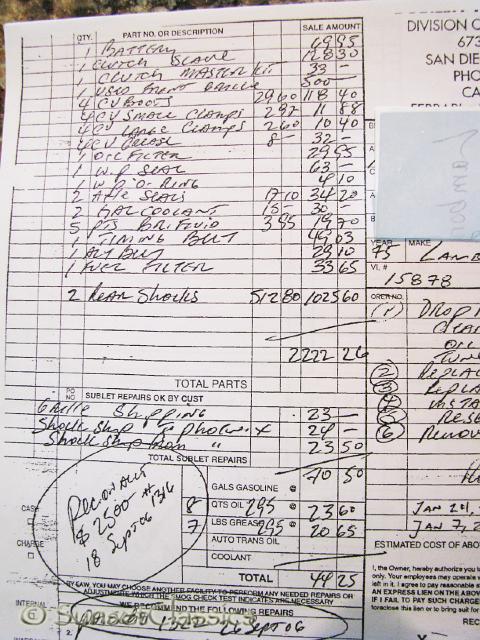 QTY. PART NO. OR DESCRIPTION SALE AMOUNT
1 BATTERY 69 95
1 CLUTCH SLAVE 128 30
1 CLUTCH MASTER KIT 33 —
1 USED FRONT GRILLE 500 —
4 CV BOOTS 29 60 118 40
4 CV SMALL CLAMPS 2 97 11 88
4 CV LARGE CLAMPS 2 60 10 40
4 CV GREASE 8 — 32 —
1 OIL FILTER 29 95
1 W.P SEAL 63 —
1 W.P. O-RING 4 10
2 AXLE SEALS 17 10 34 20
2 GAL COOLANT 15 — 30 —
5 PTS BR. FLUID 3 95 19 70
1 TIMING BELT 49 03
1 ALT BELT 29 10
1 FUEL FILTER 33 65
2 REAR SHOCKS 512 80 1025 60
2222 26
TOTAL PARTS
PO NO SUBLET REPAIRS OK BY CUST
Grille Shipping 23 —
Shock Ship 24 —
Shock Ship 23 50
TOTAL SUBLET REPAIRS 70 50
GALS GASOLINE @
8 QTS OIL 295 @ 23 60
7 LBS GREASE 295 @ 20 65
AUTO TRANS OIL
COOLANT
TOTAL 44 25
$2500
1316
18 Sept 06
CASH
CHARGE
INTERNAL
BY LAW, YOU MAY CHOOSE ANOTHER FACILITY TO PERFORM ANY NEEDED REPAIRS OR
ADJUSTMENTS WHICH THE SMOG CHECK TEST INDICATES ARE NECESSARY
WE RECOMMEND THE FOLLOWING REPAIRS
Sept 06
2.
DIVISION
673
SAN DIE
PHO
CA
YEAR MAKE
75 LAMB
VI. #
15878
ORDR NO.
(1) DROP
OIL
TUN
(2) REPLA
(3) REPLA
(4) INSTA
(5) RESE
(6) REMOV
JAN 20,
JAN 7, 2
ESTIMATED COST OF ABO
I, the Owner, hereby authorize you to
only. Your employees may operate
left in it. I agree to pay reasonable s
AN EXPRESS LIEN ON THE ABOVE
IF I FAIL TO PAY SUCH CHARGE
foreclose this lien or to bring suit for
© Symbolic